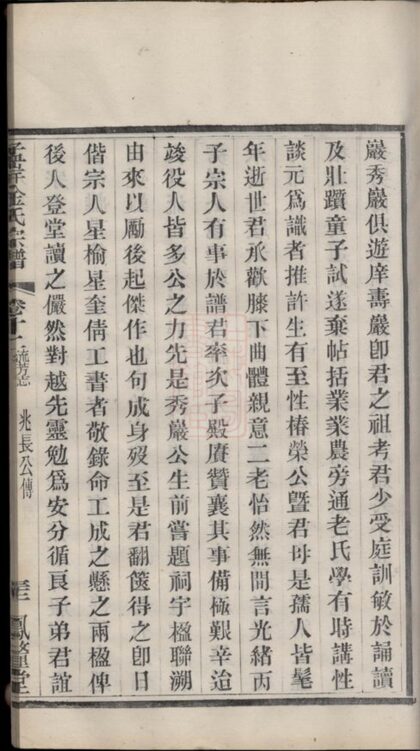 巖秀巖俱遊庠壽巖卽君之祖考君少受庭訓敏於誦讀
及壯躓童子試遂棄帖括業業農旁通老氏學有時講性
談元爲識者推許生有至性椿榮公曁君母是孺人皆髦
年逝世君承歡膝下曲體親意二老怡然無間言光緒丙
子宗人有事於譜君率次子殿賡贊襄其事備極艱辛迨
竣役人皆多公之力先是秀巖公生前嘗題祠宇楹聯溯
由來以勵後起傑作也句成身歿至是君翻篋得之卽日
偕宗人星榆星奎倩工書者敬錄命工成之懸之兩楹俾
後人登堂讀之儼然對越先靈勉爲安分循良子弟君誼
氏宗譜 卷十一 兆長公傳